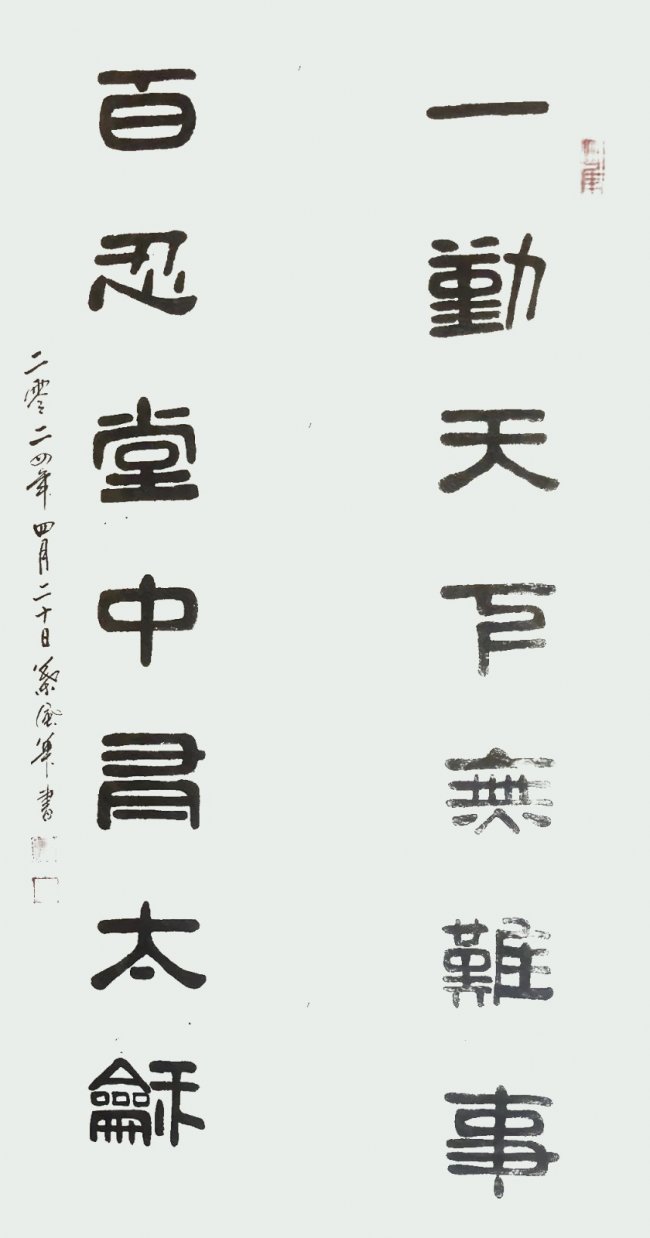 一勤天下無難事
百忍堂中有太龢
二零二四年四月二十日
書